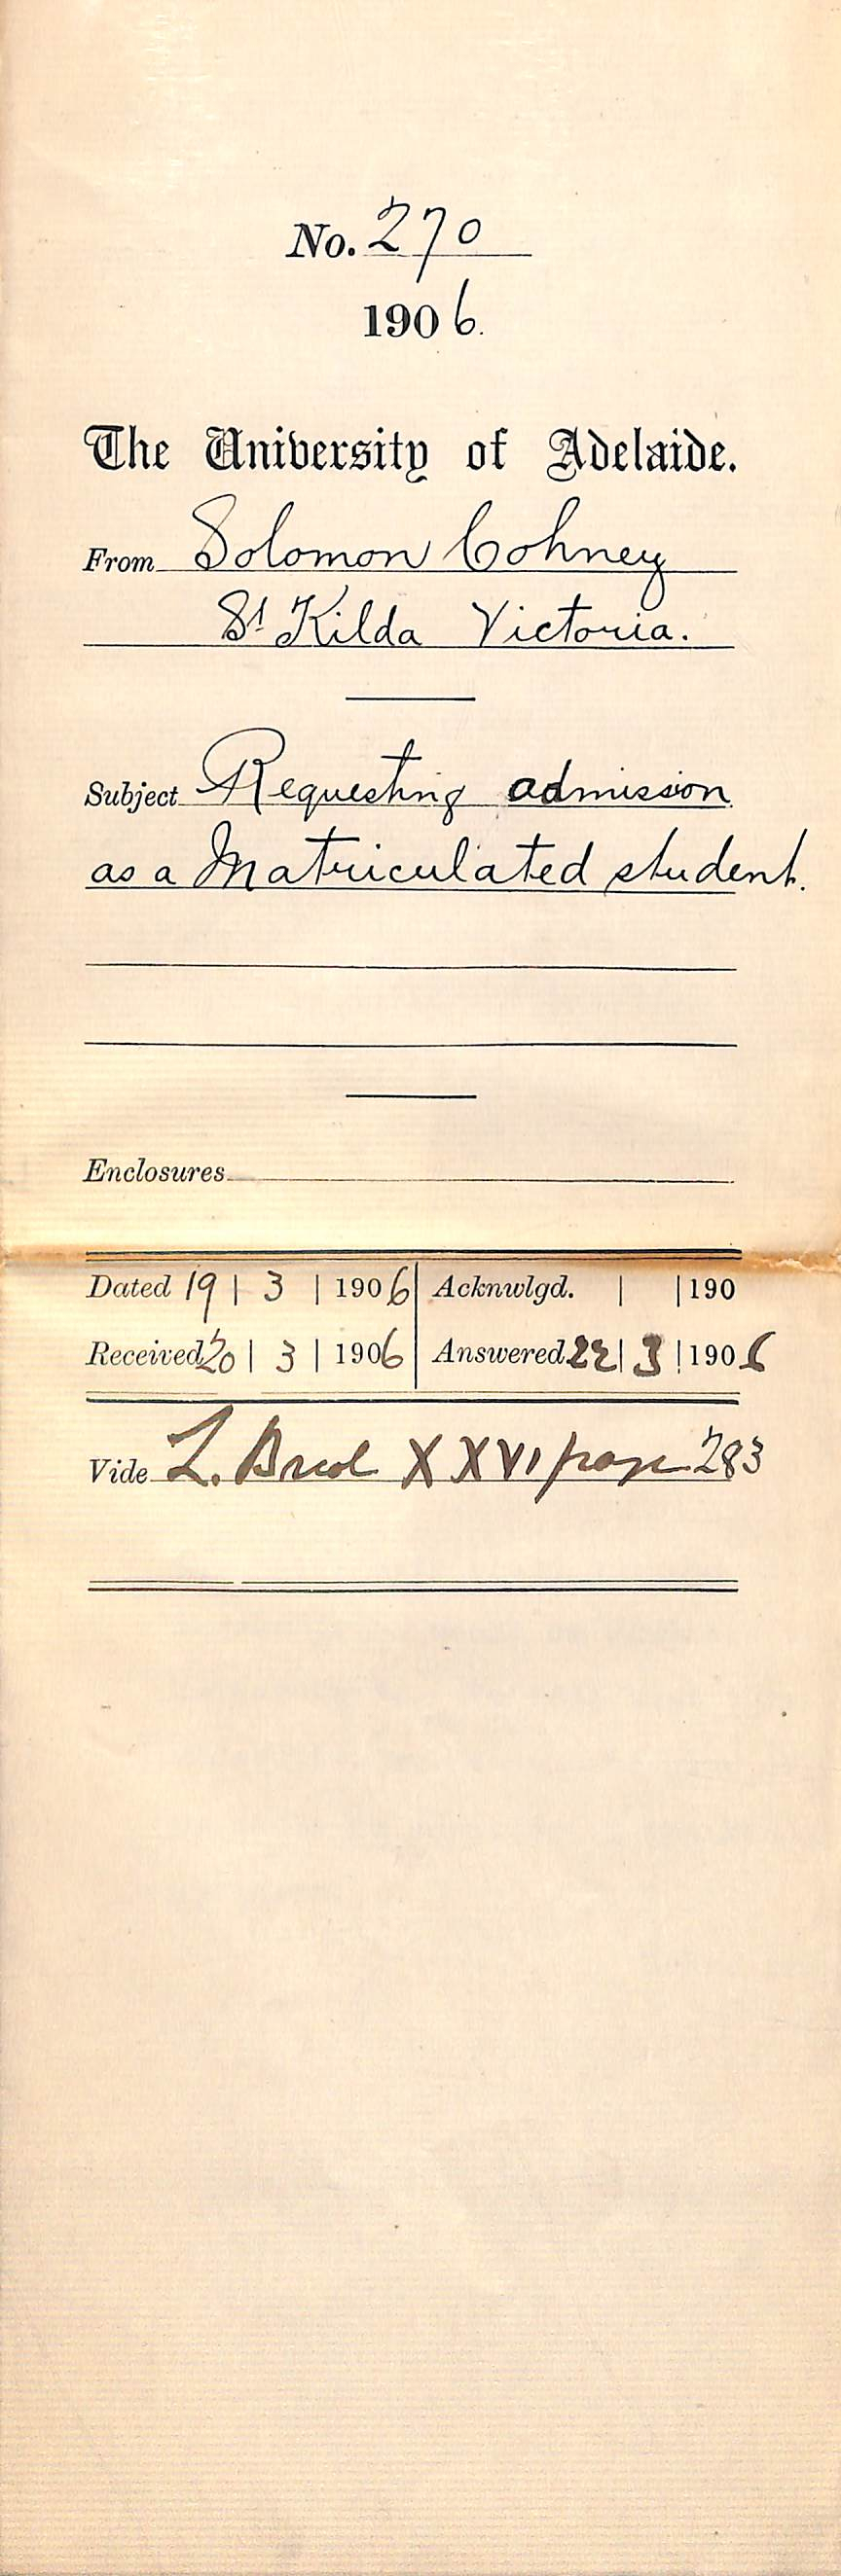 No. 270
1906.
The University of Adelaide.
From Solomon Cohney
St Kilda Victoria.
Subject Requesting admission
as a Matriculated student.
Enclosures
Dated 19 | 3 | 1906 Acknwlgd. | | 190
Received 20 | 3 | 1906 Answered 22 | 3 | 1906
Vide L. XXVI page 283